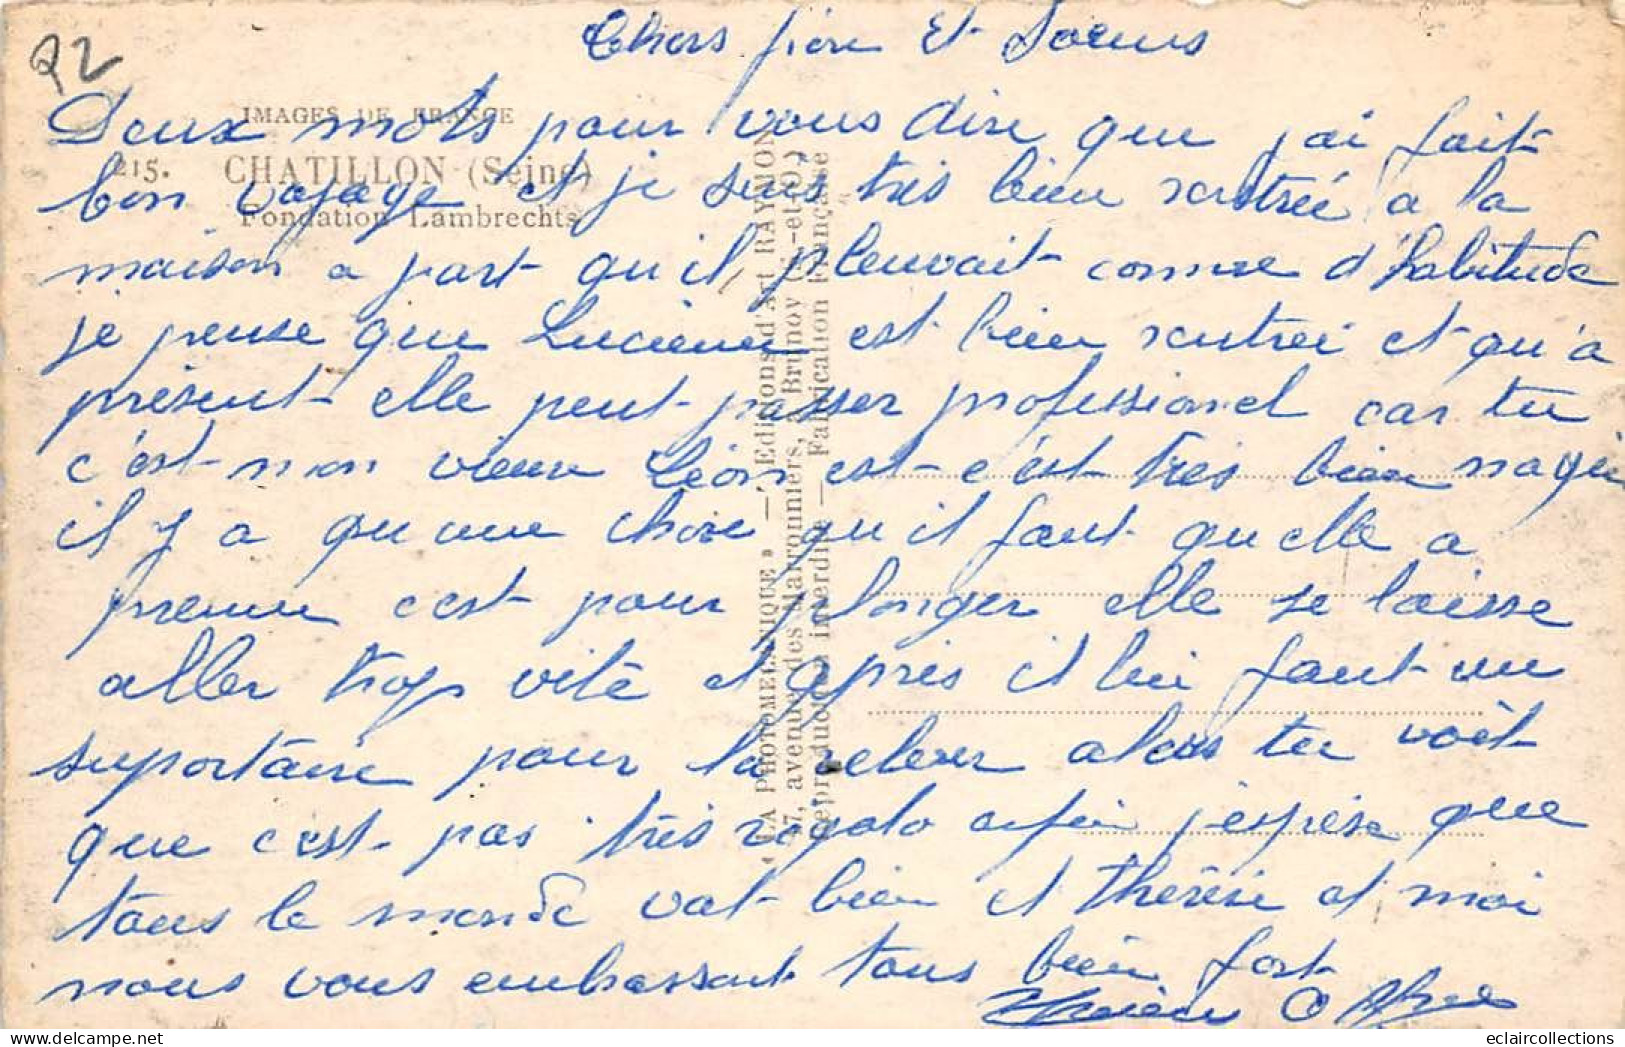 92
Chers frère Et Soeurs
IMAGES DE FRANCE
215. CHATILLON (Seine)
Fondation Lambrechts
Deux mots pour vous dire que j'ai fait
bon voyage et je suis très bien rentrée a la
maison a part qu'il pleuvait comme d'habitude
je pense que Lucienne est bien rentrée et qu'a
présent elle peut passer professionel car tu
c'est mon vieux Léon est c'est très bien nagée
il y a qu'une chose qu'il faut qu'elle a
prenne c'est pour plonger elle se laisse
aller trop vite et après il lui faut un
suportaire pour la relever alors tu voit
que c'est pas très rigolo enfin j'espère que
tous le monde vat bien et thérèse et moi
nous vous embrassont tous bien fort
« LA PHOTOMECANIQUE » — Editions d'Art RAYMON
37, avenue des Marronniers, a Brunoy (S.-et-O.)
Reproduction interdite — Fabrication Française
eclaircollections